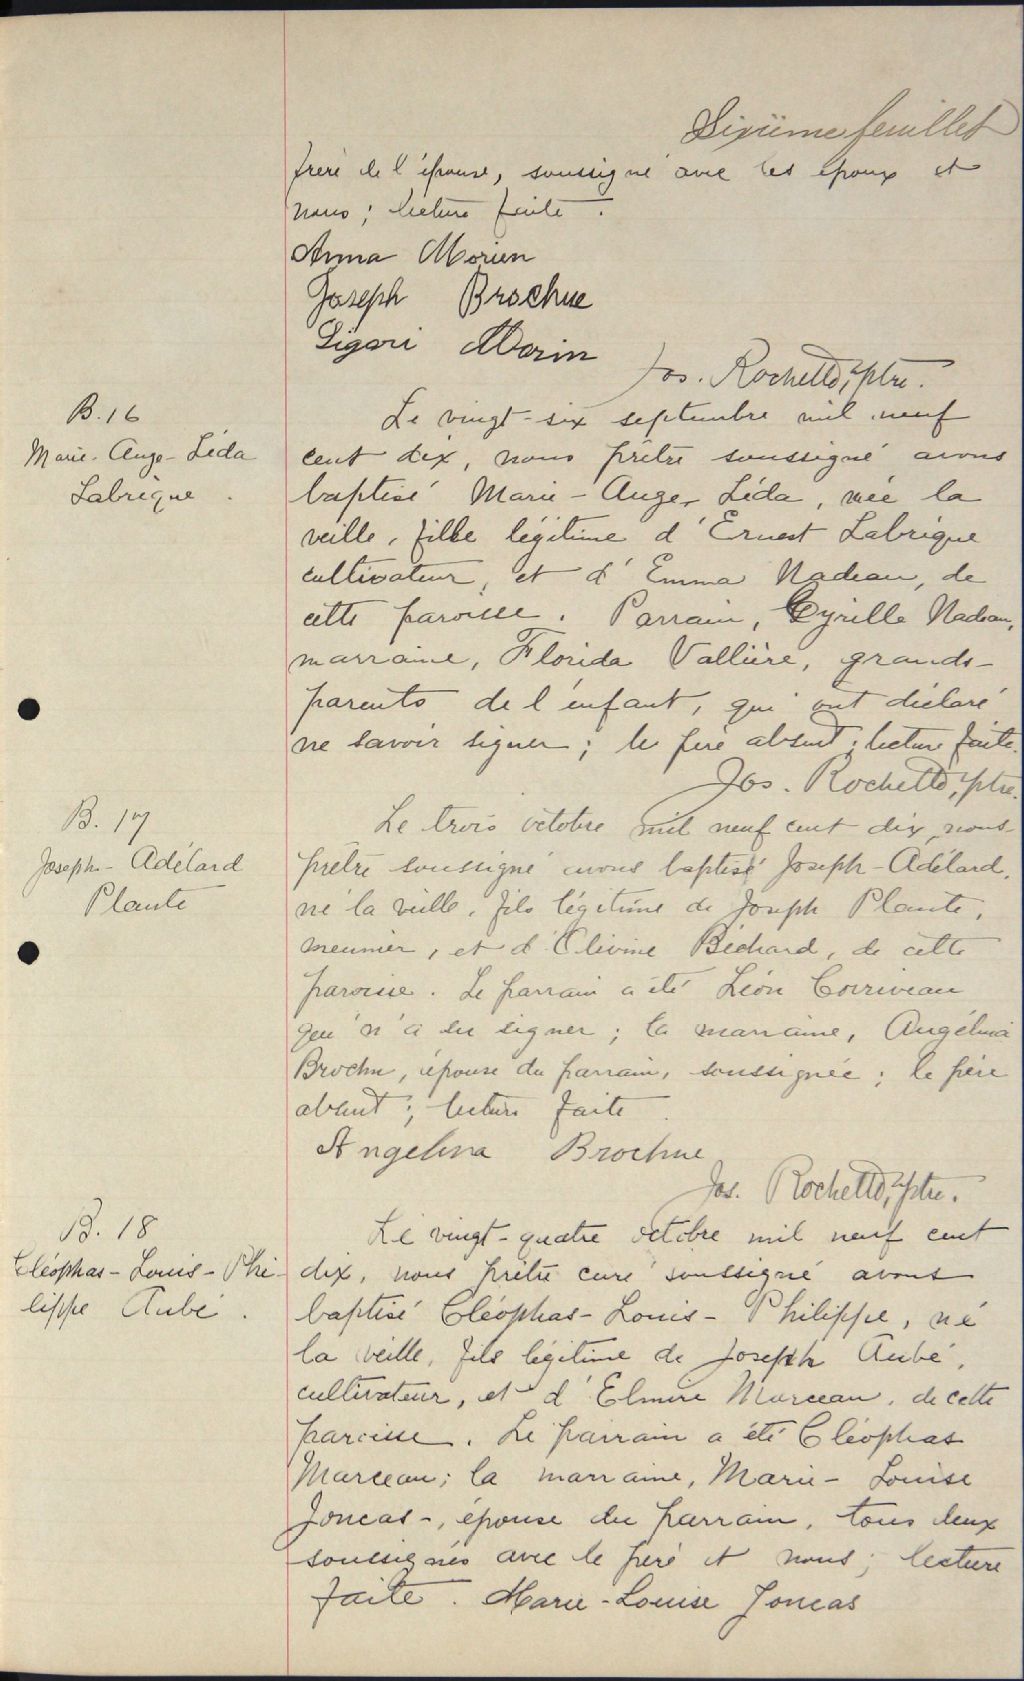 Sixième feuillet
frère de l'épouse, soussigné avec les époux et
nous; lecture faite.
Anna Morin
Joseph Brochue
Ligori Morin
Jos. Rochette, ptre.
B. 16
Marie-Ange-Léda
Labrèque.
Le vingt-six septembre mil neuf
cent dix, nous prêtre soussigné avons
baptisé Marie-Ange-Léda, née la
veille, fille légitime d'Ernest Labrèque
cultivateur, et d'Emma Nadeau, de
cette paroisse. Parrain, Cyrille Nadeau,
marraine, Florida Vallière, grands-
parents de l'enfant, qui ont déclaré
ne savoir signer; le père absent; lecture faite.
Jos. Rochette, ptre.
B. 17
Joseph-Adélard
Plante
Le trois octobre mil neuf cent dix, nous
prêtre soussigné avons baptisé Joseph-Adélard,
né la veille, fils légitime de Joseph Plante,
meunier, et d'Olivine Béchard, de cette
paroisse. Le parrain a été Léon Corriveau
qui n'a su signer; la marraine, Angélina
Brochu, épouse du parrain, soussignée; le père
absent; lecture faite
Angelina Brochue
Jos. Rochette, ptre.
B. 18
Cléophas-Louis-Phi-
lippe Aubé.
Le vingt-quatre octobre mil neuf cent
dix, nous prêtre curé soussigné avons
baptisé Cléophas-Louis-Philippe, né
la veille, fils légitime de Joseph Aubé,
cultivateur, et d'Elmire Marceau, de cette
paroisse. Le parrain a été Cléophas
Marceau; la marraine, Marie-Louise
Joncas-, épouse du parrain, tous deux
soussignés avec le père et nous; lecture
faite. Marie-Louise Joncas